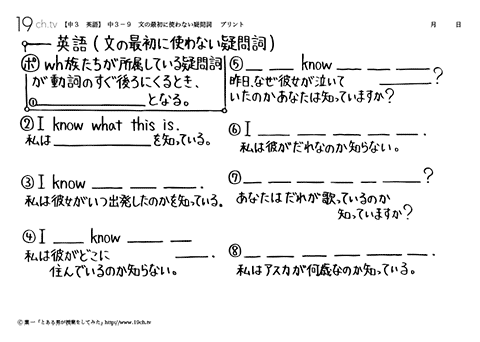 19ch.tv 【中3 英語】 中3－9 文の最初に使わない疑問詞 プリント 月 日
英語(文の最初に使わない疑問詞)
ポ wh族たちが所属している疑問詞
が動詞のすぐ後ろにくるとき、
①__________となる。
②I know what this is.
私は__________を知っている。
③I know ___ ___ ___.
私は彼女がいつ出発したのかを知っている。
④I ___ know ___ ___ ___.
私は彼がどこに
住んでいるのか知らない。
⑤___ ___ know ___ ___ ___ ___?
昨日、なぜ彼女が泣いて
いたのかあなたは知っていますか?
⑥I ___ ___ ___ ___ ___.
私は彼がだれなのか知らない。
⑦___ ___ ___ ___ ___ ___?
あなたはだれが歌っているのか
知っていますか?
⑧___ ___ ___ ___ ___ ___.
私はアスカが何歳なのか知っている。
Ⓒ葉一「とある男が授業をしてみた」http://www.19ch.tv